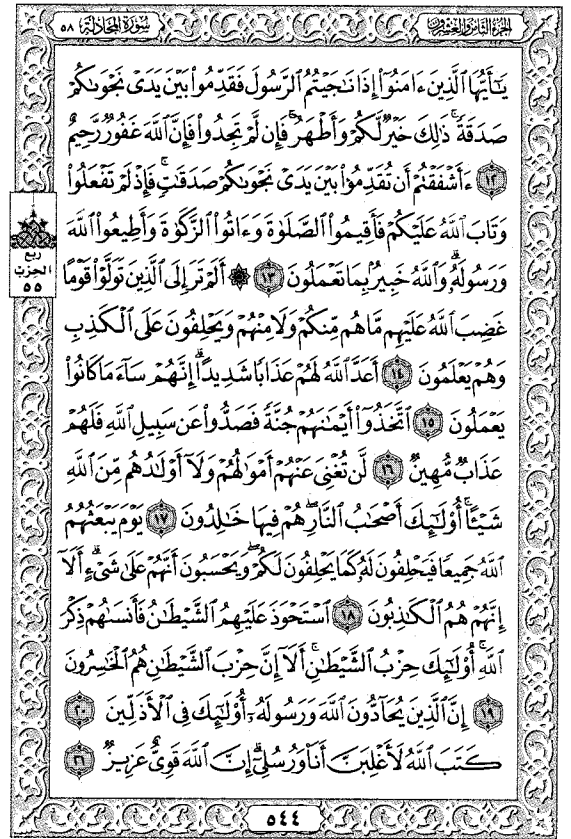 سُورَةُ المُجَادلَة ٥٨
الجُزءُ الثَّامِنُ وَالعِشرُونَ
يَـٰٓأَيُّهَا ٱلَّذِينَ ءَامَنُوٓا۟ إِذَا نَـٰجَيْتُمُ ٱلرَّسُولَ فَقَدِّمُوا۟ بَيْنَ يَدَىْ نَجْوَىٰكُمْ
صَدَقَةً ۚ ذَٰلِكَ خَيْرٌ لَّكُمْ وَأَطْهَرُ ۚ فَإِن لَّمْ تَجِدُوا۟ فَإِنَّ ٱللَّهَ غَفُورٌ رَّحِيمٌ
١٢ ءَأَشْفَقْتُمْ أَن تُقَدِّمُوا۟ بَيْنَ يَدَىْ نَجْوَىٰكُمْ صَدَقَـٰتٍ ۚ فَإِذْ لَمْ تَفْعَلُوا۟
وَتَابَ ٱللَّهُ عَلَيْكُمْ فَأَقِيمُوا۟ ٱلصَّلَوٰةَ وَءَاتُوا۟ ٱلزَّكَوٰةَ وَأَطِيعُوا۟ ٱللَّهَ
وَرَسُولَهُۥ ۚ وَٱللَّهُ خَبِيرٌۢ بِمَا تَعْمَلُونَ ١٣ ۞ أَلَمْ تَرَ إِلَى ٱلَّذِينَ تَوَلَّوْا۟ قَوْمًا
غَضِبَ ٱللَّهُ عَلَيْهِم مَّا هُم مِّنكُمْ وَلَا مِنْهُمْ وَيَحْلِفُونَ عَلَى ٱلْكَذِبِ
وَهُمْ يَعْلَمُونَ ١٤ أَعَدَّ ٱللَّهُ لَهُمْ عَذَابًا شَدِيدًا ۖ إِنَّهُمْ سَآءَ مَا كَانُوا۟
يَعْمَلُونَ ١٥ ٱتَّخَذُوٓا۟ أَيْمَـٰنَهُمْ جُنَّةً فَصَدُّوا۟ عَن سَبِيلِ ٱللَّهِ فَلَهُمْ
عَذَابٌ مُّهِينٌ ١٦ لَّن تُغْنِىَ عَنْهُمْ أَمْوَٰلُهُمْ وَلَآ أَوْلَـٰدُهُم مِّنَ ٱللَّهِ
شَيْـًٔا ۚ أُو۟لَـٰٓئِكَ أَصْحَـٰبُ ٱلنَّارِ ۖ هُمْ فِيهَا خَـٰلِدُونَ ١٧ يَوْمَ يَبْعَثُهُمُ
ٱللَّهُ جَمِيعًا فَيَحْلِفُونَ لَهُۥ كَمَا يَحْلِفُونَ لَكُمْ ۖ وَيَحْسَبُونَ أَنَّهُمْ عَلَىٰ شَىْءٍ ۚ أَلَآ
إِنَّهُمْ هُمُ ٱلْكَـٰذِبُونَ ١٨ ٱسْتَحْوَذَ عَلَيْهِمُ ٱلشَّيْطَـٰنُ فَأَنسَىٰهُمْ ذِكْرَ
ٱللَّهِ ۚ أُو۟لَـٰٓئِكَ حِزْبُ ٱلشَّيْطَـٰنِ ۚ أَلَآ إِنَّ حِزْبَ ٱلشَّيْطَـٰنِ هُمُ ٱلْخَـٰسِرُونَ
١٩ إِنَّ ٱلَّذِينَ يُحَآدُّونَ ٱللَّهَ وَرَسُولَهُۥٓ أُو۟لَـٰٓئِكَ فِى ٱلْأَذَلِّينَ ٢٠
كَتَبَ ٱللَّهُ لَأَغْلِبَنَّ أَنَا۠ وَرُسُلِىٓ ۚ إِنَّ ٱللَّهَ قَوِىٌّ عَزِيزٌ ٢١
ربع
الحزب
٥٥
٥٤٤